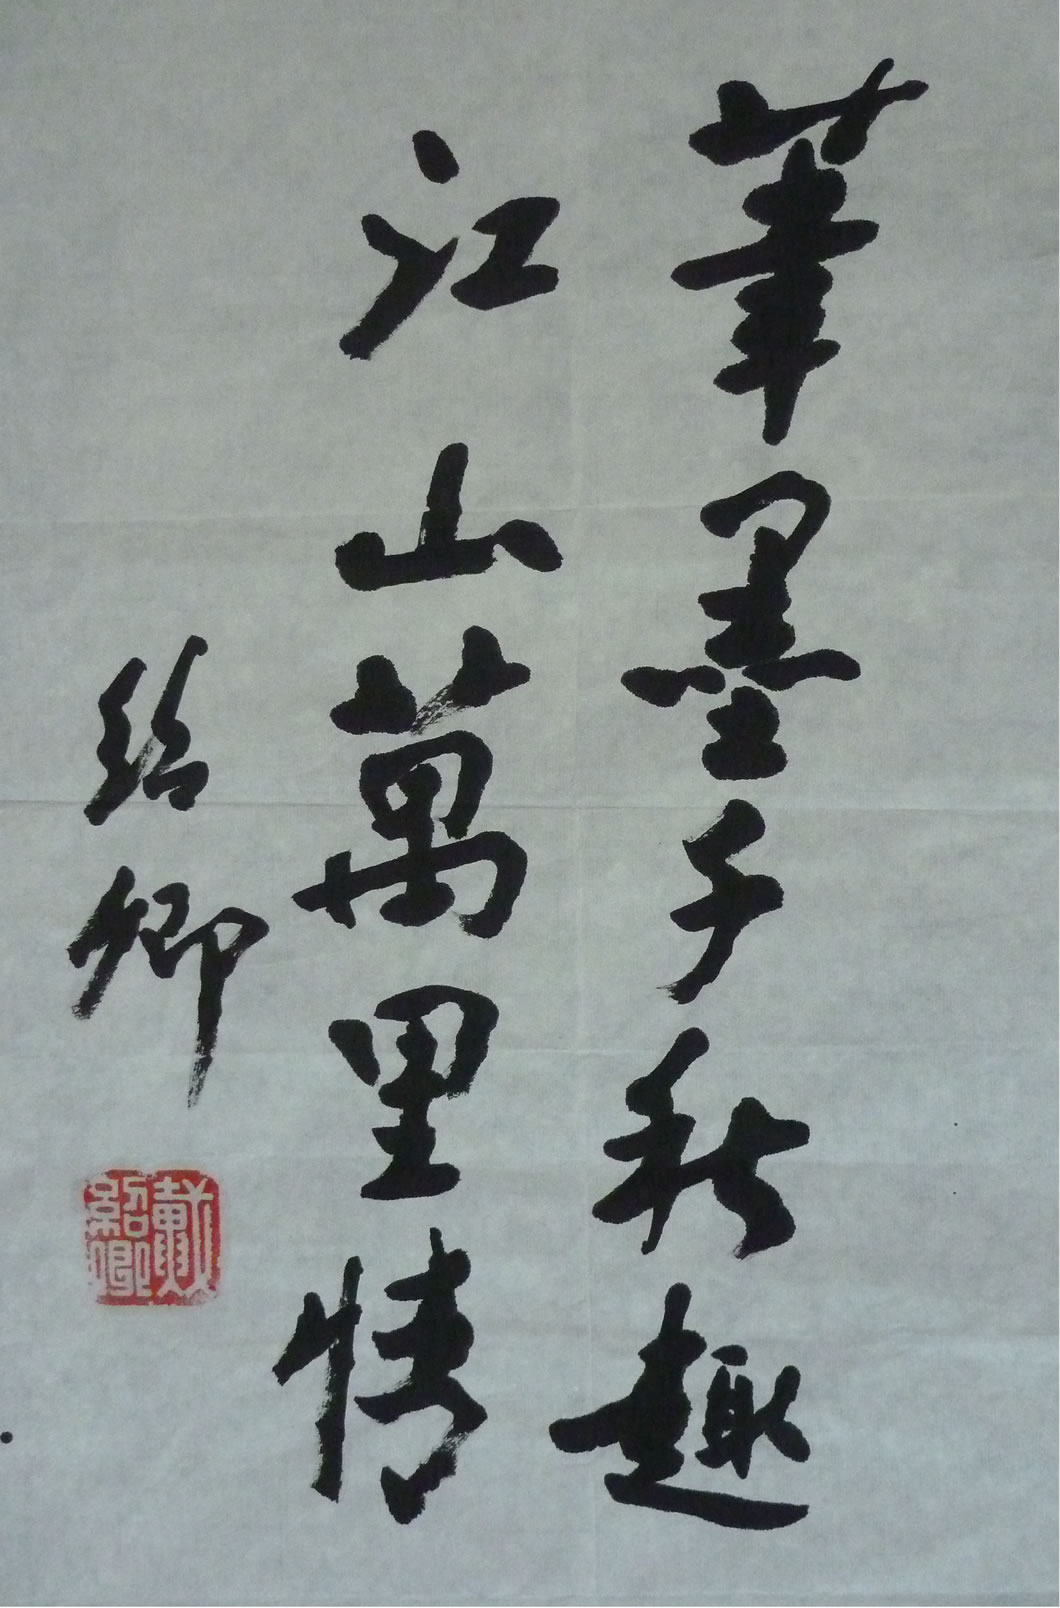 筆墨千秋趣
江山萬里情
紹卿
戴紹卿